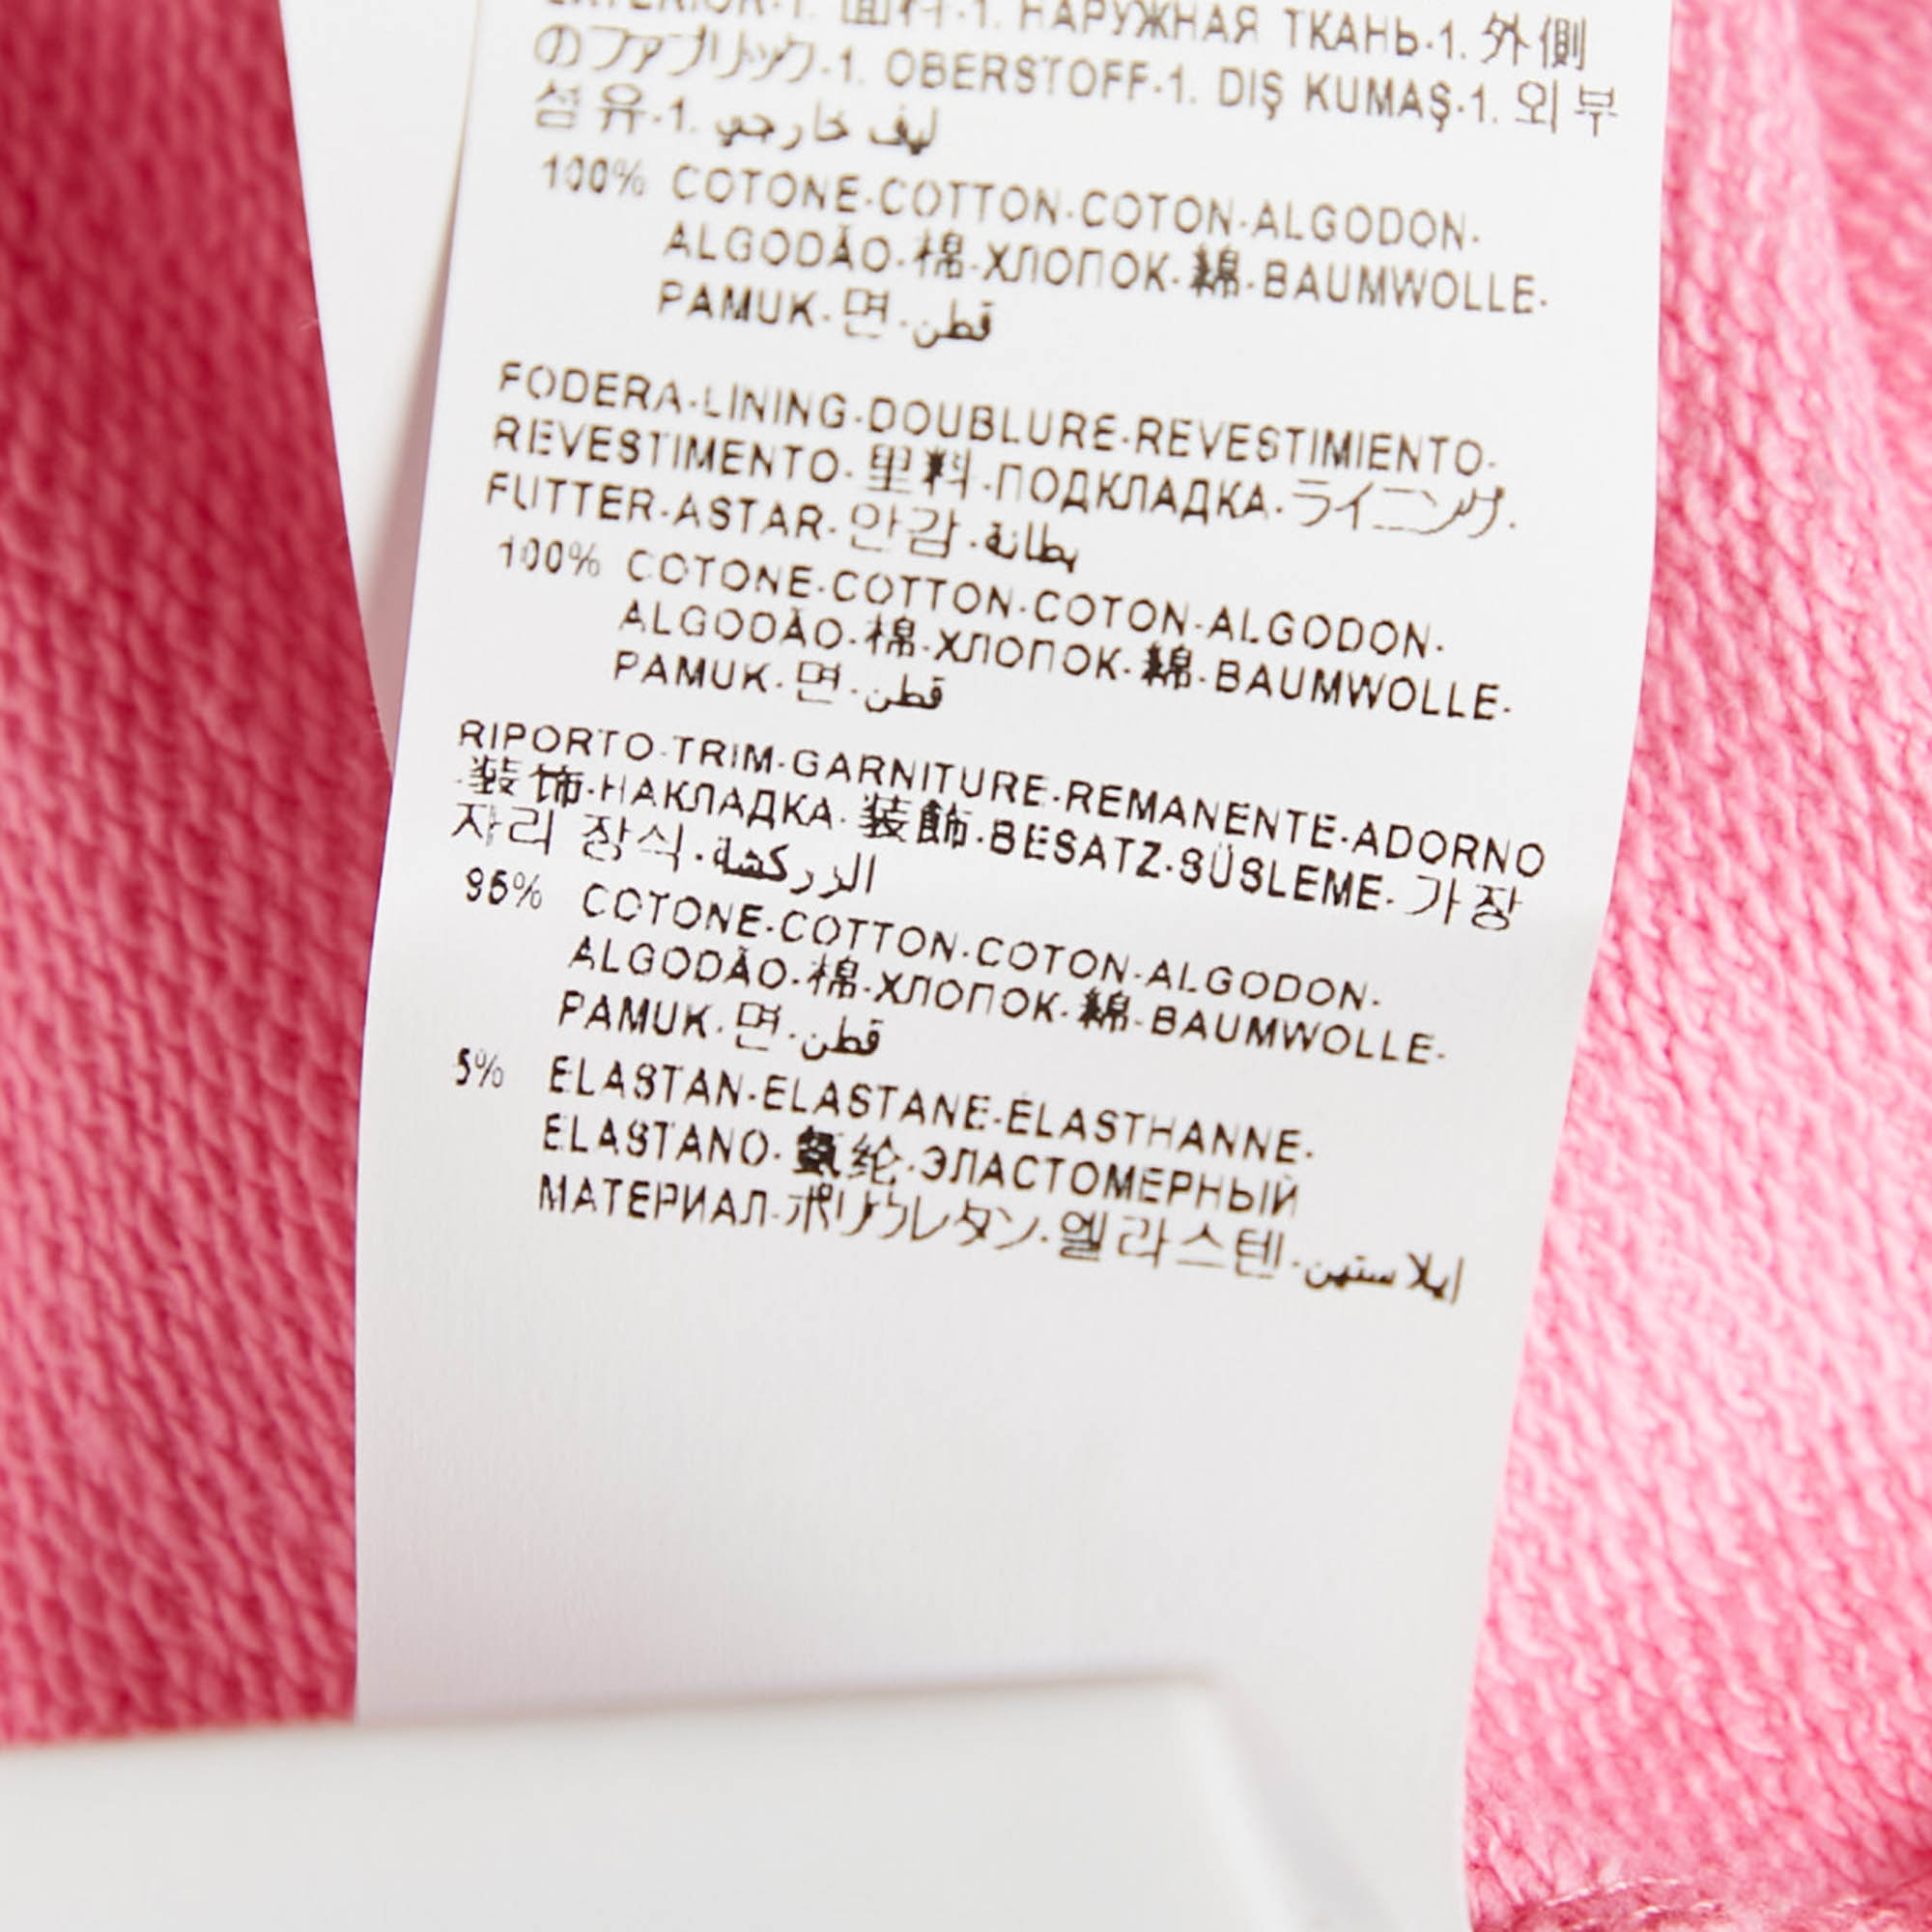 EXTERIOR·1. 面料·1. НАРУЖНАЯ ТКАНЬ·1. 外側
のファブリック·1. OBERSTOFF·1. DIŞ KUMAŞ·1. 외부
섬유·1. ليف خارجي
100% COTONE·COTTON·COTON·ALGODON·
ALGODÃO·棉·ХЛОПОК·綿·BAUMWOLLE·
PAMUK·면·قطن
FODERA·LINING·DOUBLURE·REVESTIMIENTO·
REVESTIMENTO·里料·ПОДКЛАДКА·ライニング·
FUTTER·ASTAR·안감·بطانة
100% COTONE·COTTON·COTON·ALGODON·
ALGODÃO·棉·ХЛОПОК·綿·BAUMWOLLE·
PAMUK·면·قطن
RIPORTO·TRIM·GARNITURE·REMANENTE·ADORNO
·装饰·НАКЛАДКА·装飾·BESATZ·SÜSLEME·가장
자리 장식·الزركشة
95% COTONE·COTTON·COTON·ALGODON·
ALGODÃO·棉·ХЛОПОК·綿·BAUMWOLLE·
PAMUK·면·قطن
5% ELASTAN·ELASTANE·ÉLASTHANNE·
ELASTANO·氨纶·ЭЛАСТОМЕРНЫЙ
МАТЕРИАЛ·ポリウレタン·엘라스텐·ايلاستين